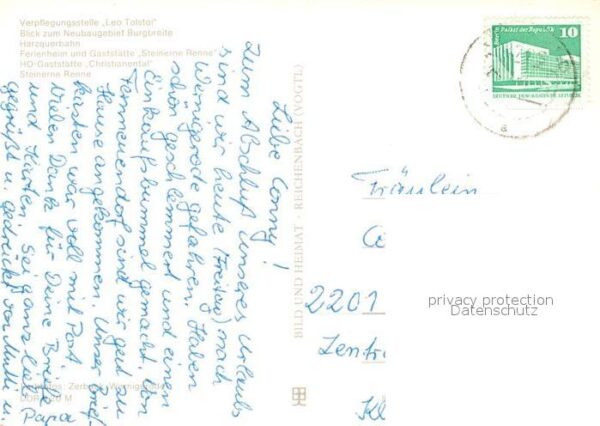 Verpflegungsstelle „Leo Tolstoi"
Blick zum Neubaugebiet Burgbreite
Harzquerbahn
Ferienheim und Gaststätte „Steinerne Renne"
HO-Gaststätte „Christianental"
Steinerne Renne
Liebe Conny!
Zum Abschluß unseres Urlaubs
sind wir heute (Freitag) nach
Wernigerode gefahren. Haben
schön geschlemmert und einen
Einkaufsbummel gemacht. Von
Tenneuendorf sind wir gut zu
Hause angekommen. Unser Brief-
kasten war voll mit Post.
Vielen Dank für Deine Briefe
und Karten. Sei ganz lieb
gegrüßt u. gedrückt von Mutti u.
Papa
BILD UND HEIMAT · REICHENBACH (VOGTL)
10
Palast der Republik
DEUTSCHE DEMOKRATISCHE REPUBLIK
a
Fräulein
2201
Zentr
Kl
privacy protection
Datenschutz
Zerback, Wernigerode
M